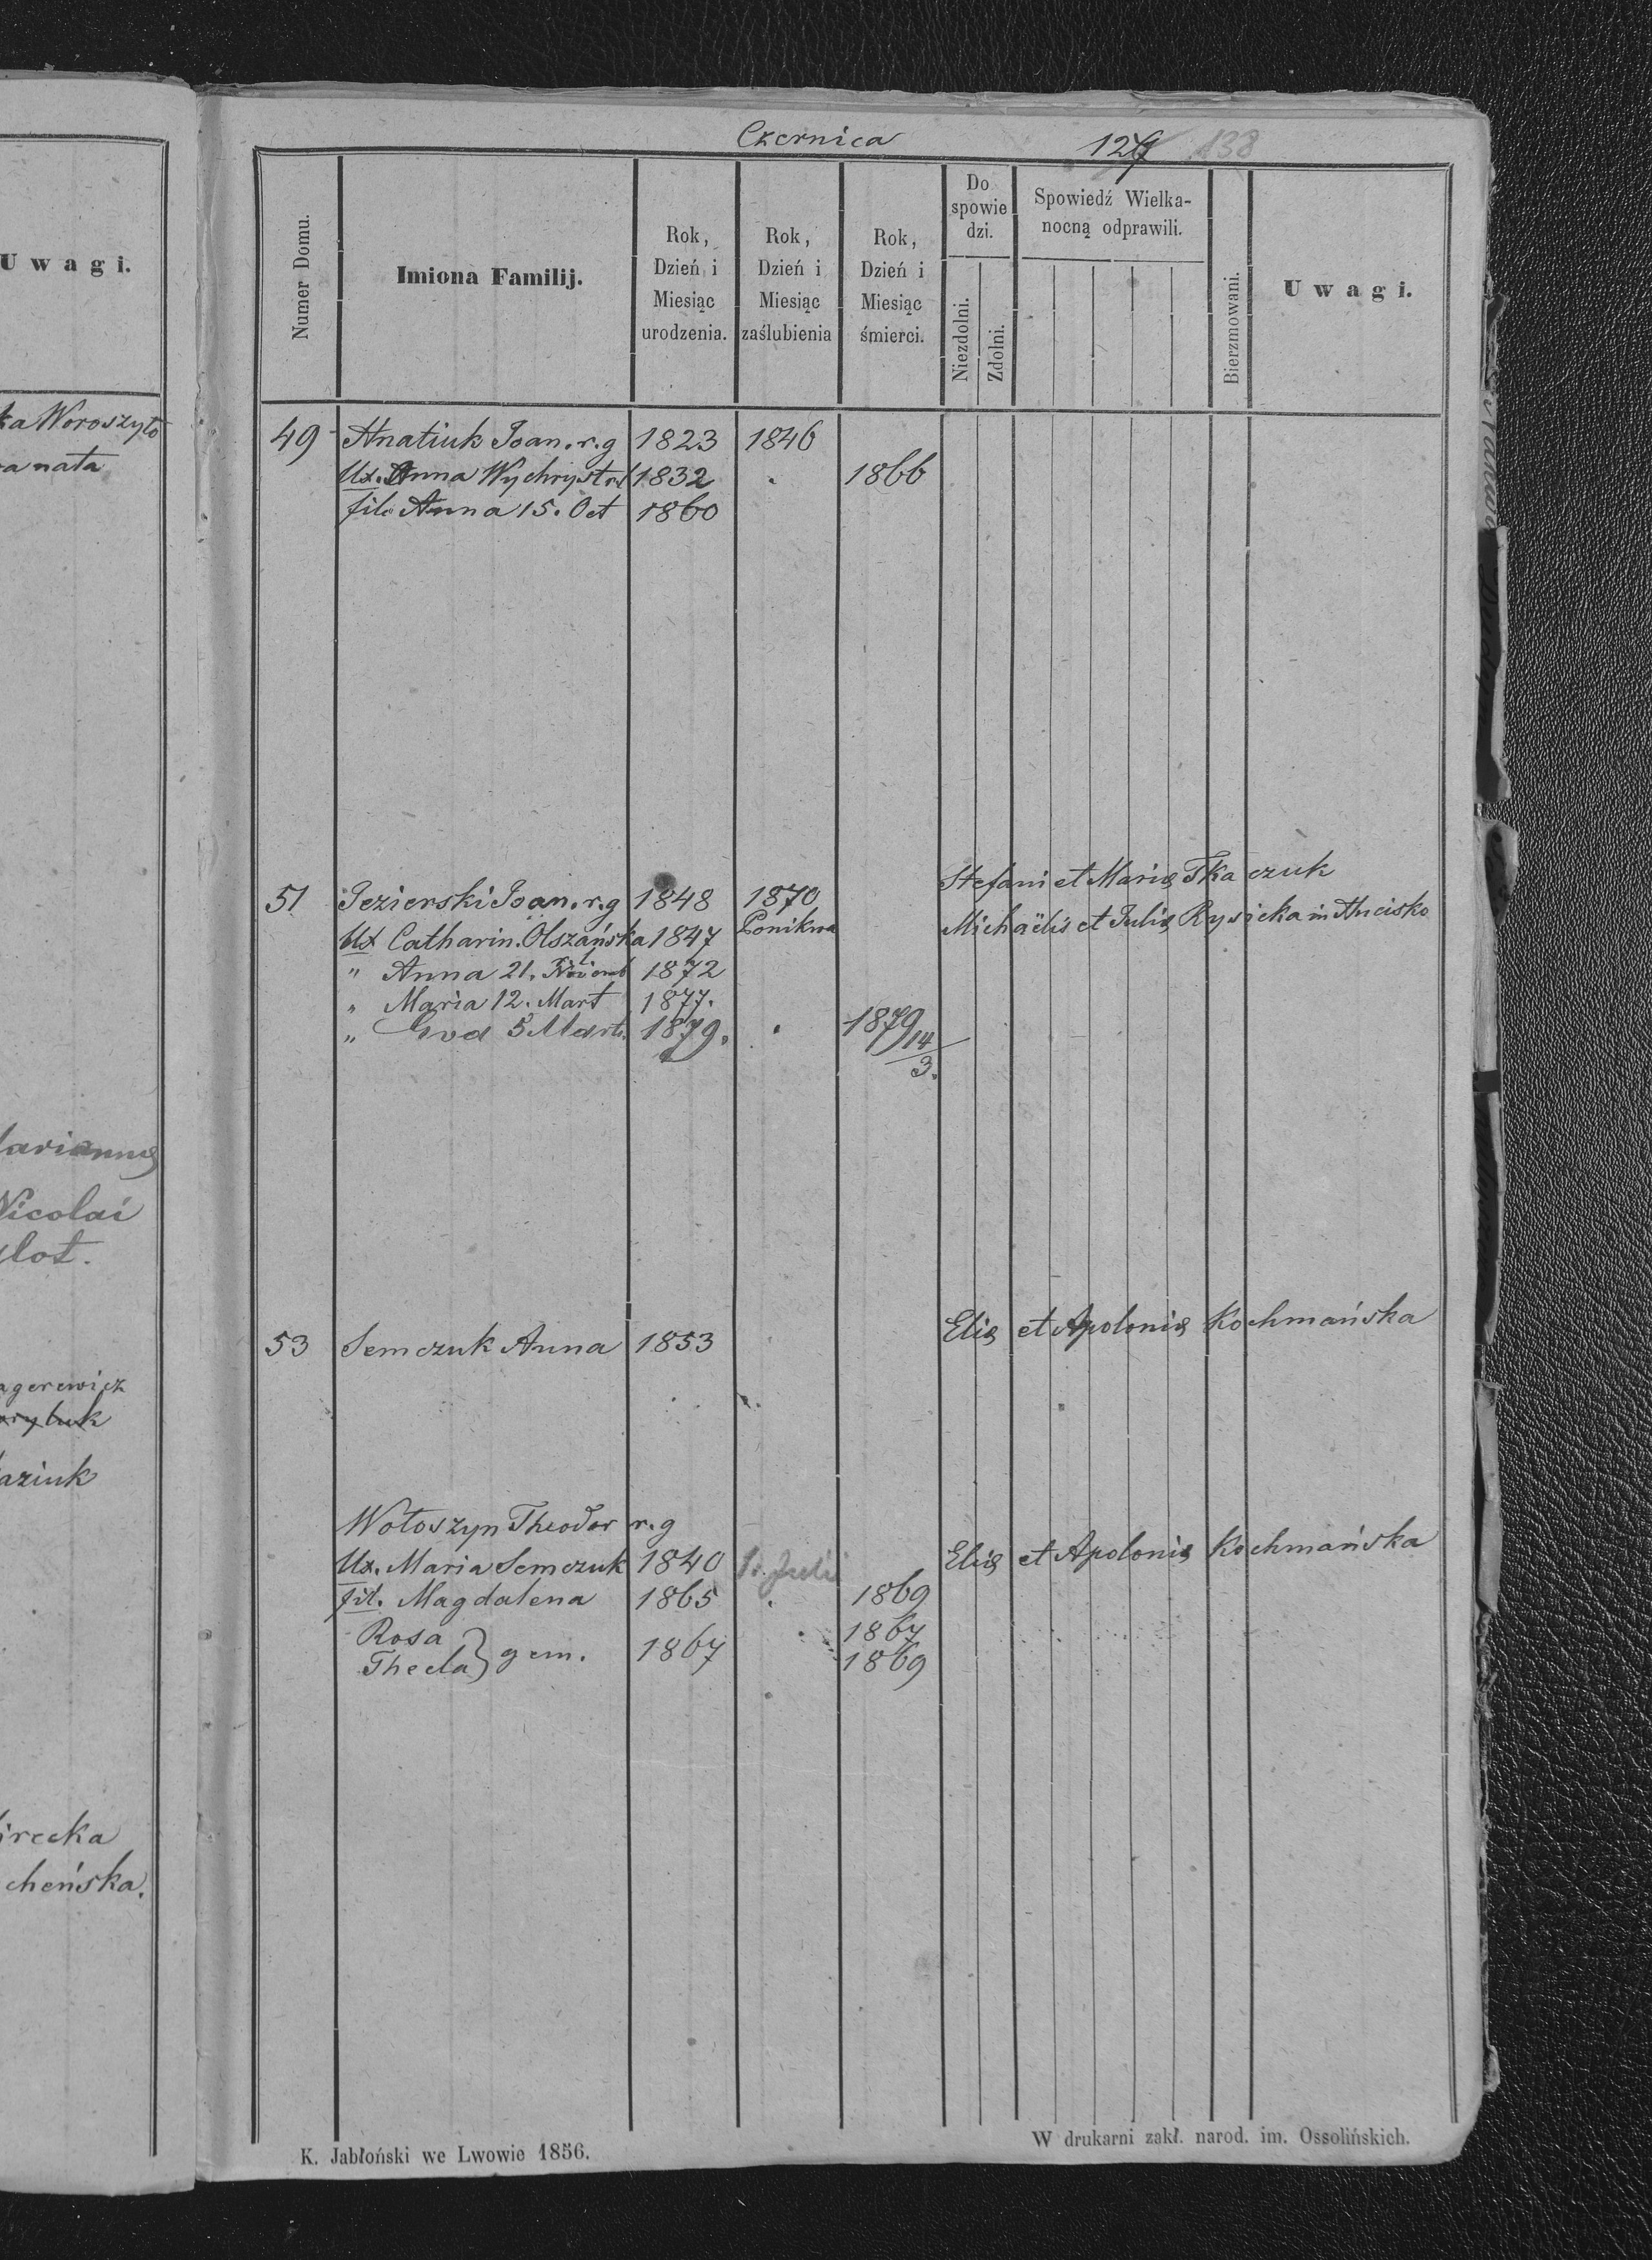 Czernica
138
Numer Domu.
Imiona Familij.
Rok, Dzień i Miesiąc urodzenia.
Rok, Dzień i Miesiąc zaślubienia
Rok, Dzień i Miesiąc śmierci.
Do spowiedzi.
Niezdolni.
Zdolni.
Spowiedź Wielkanocną odprawili.
Bierzmowani.
Uwagi.
Uwagi.
ka Woroszyło
a nata
49 Hnatiuk Joan. r. g 1823 1846
Ux. Anna 1832 1866
fil. Anna 15. Oct 1860
Stefani et Mariæ Tkaczuk
51 Jezierski Joan. r. g 1848 1870
Ponikwa
Michaëlis et Juliæ Rysicka in Hucisko
Ux Catharin. Olszańska 1847
" Anna 21. 1872
" Maria 12. Mart 1877.
" Eva 5 Marti. 1879. 1879 14/3.
arianna
Nicolai
Eliæ et Apoloniæ Kochmańska
53 Semczuk Anna 1853
agerewicz
aziuk
Wołoszyn Theodor r. g
Ux. Maria Semczuk 1840
Eliæ et Apoloniæ Kochmańska
fil. Magdalena 1865 1869
Rosa 1867
Thecla } gem. 1867 1869
irecka
cheńska.
K. Jabłoński we Lwowie 1856.
W drukarni zakł. narod. im. Ossolińskich.